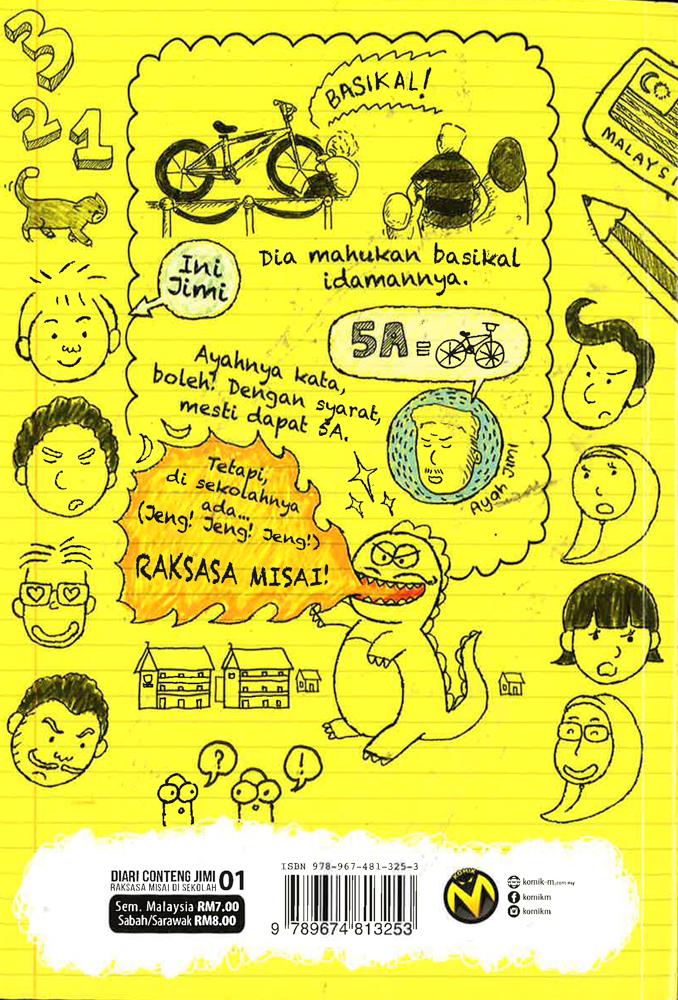 3
2 1
BASIKAL!
MALAYSI
Ini
Jimi
Dia mahukan basikal
idamannya.
5A =
Ayahnya kata,
boleh! Dengan syarat,
mesti dapat 5A.
Ayah Jimi
Tetapi,
di sekolahnya
ada...
(Jeng! Jeng! Jeng!)
RAKSASA MISAI!
? !
DIARI CONTENG JIMI 01
RAKSASA MISAI DI SEKOLAH
Sem. Malaysia RM7.00
Sabah/Sarawak RM8.00
ISBN 978-967-481-325-3
9 789674 813253
KOMIK
M
komik-m.com.my
komikm
komikm